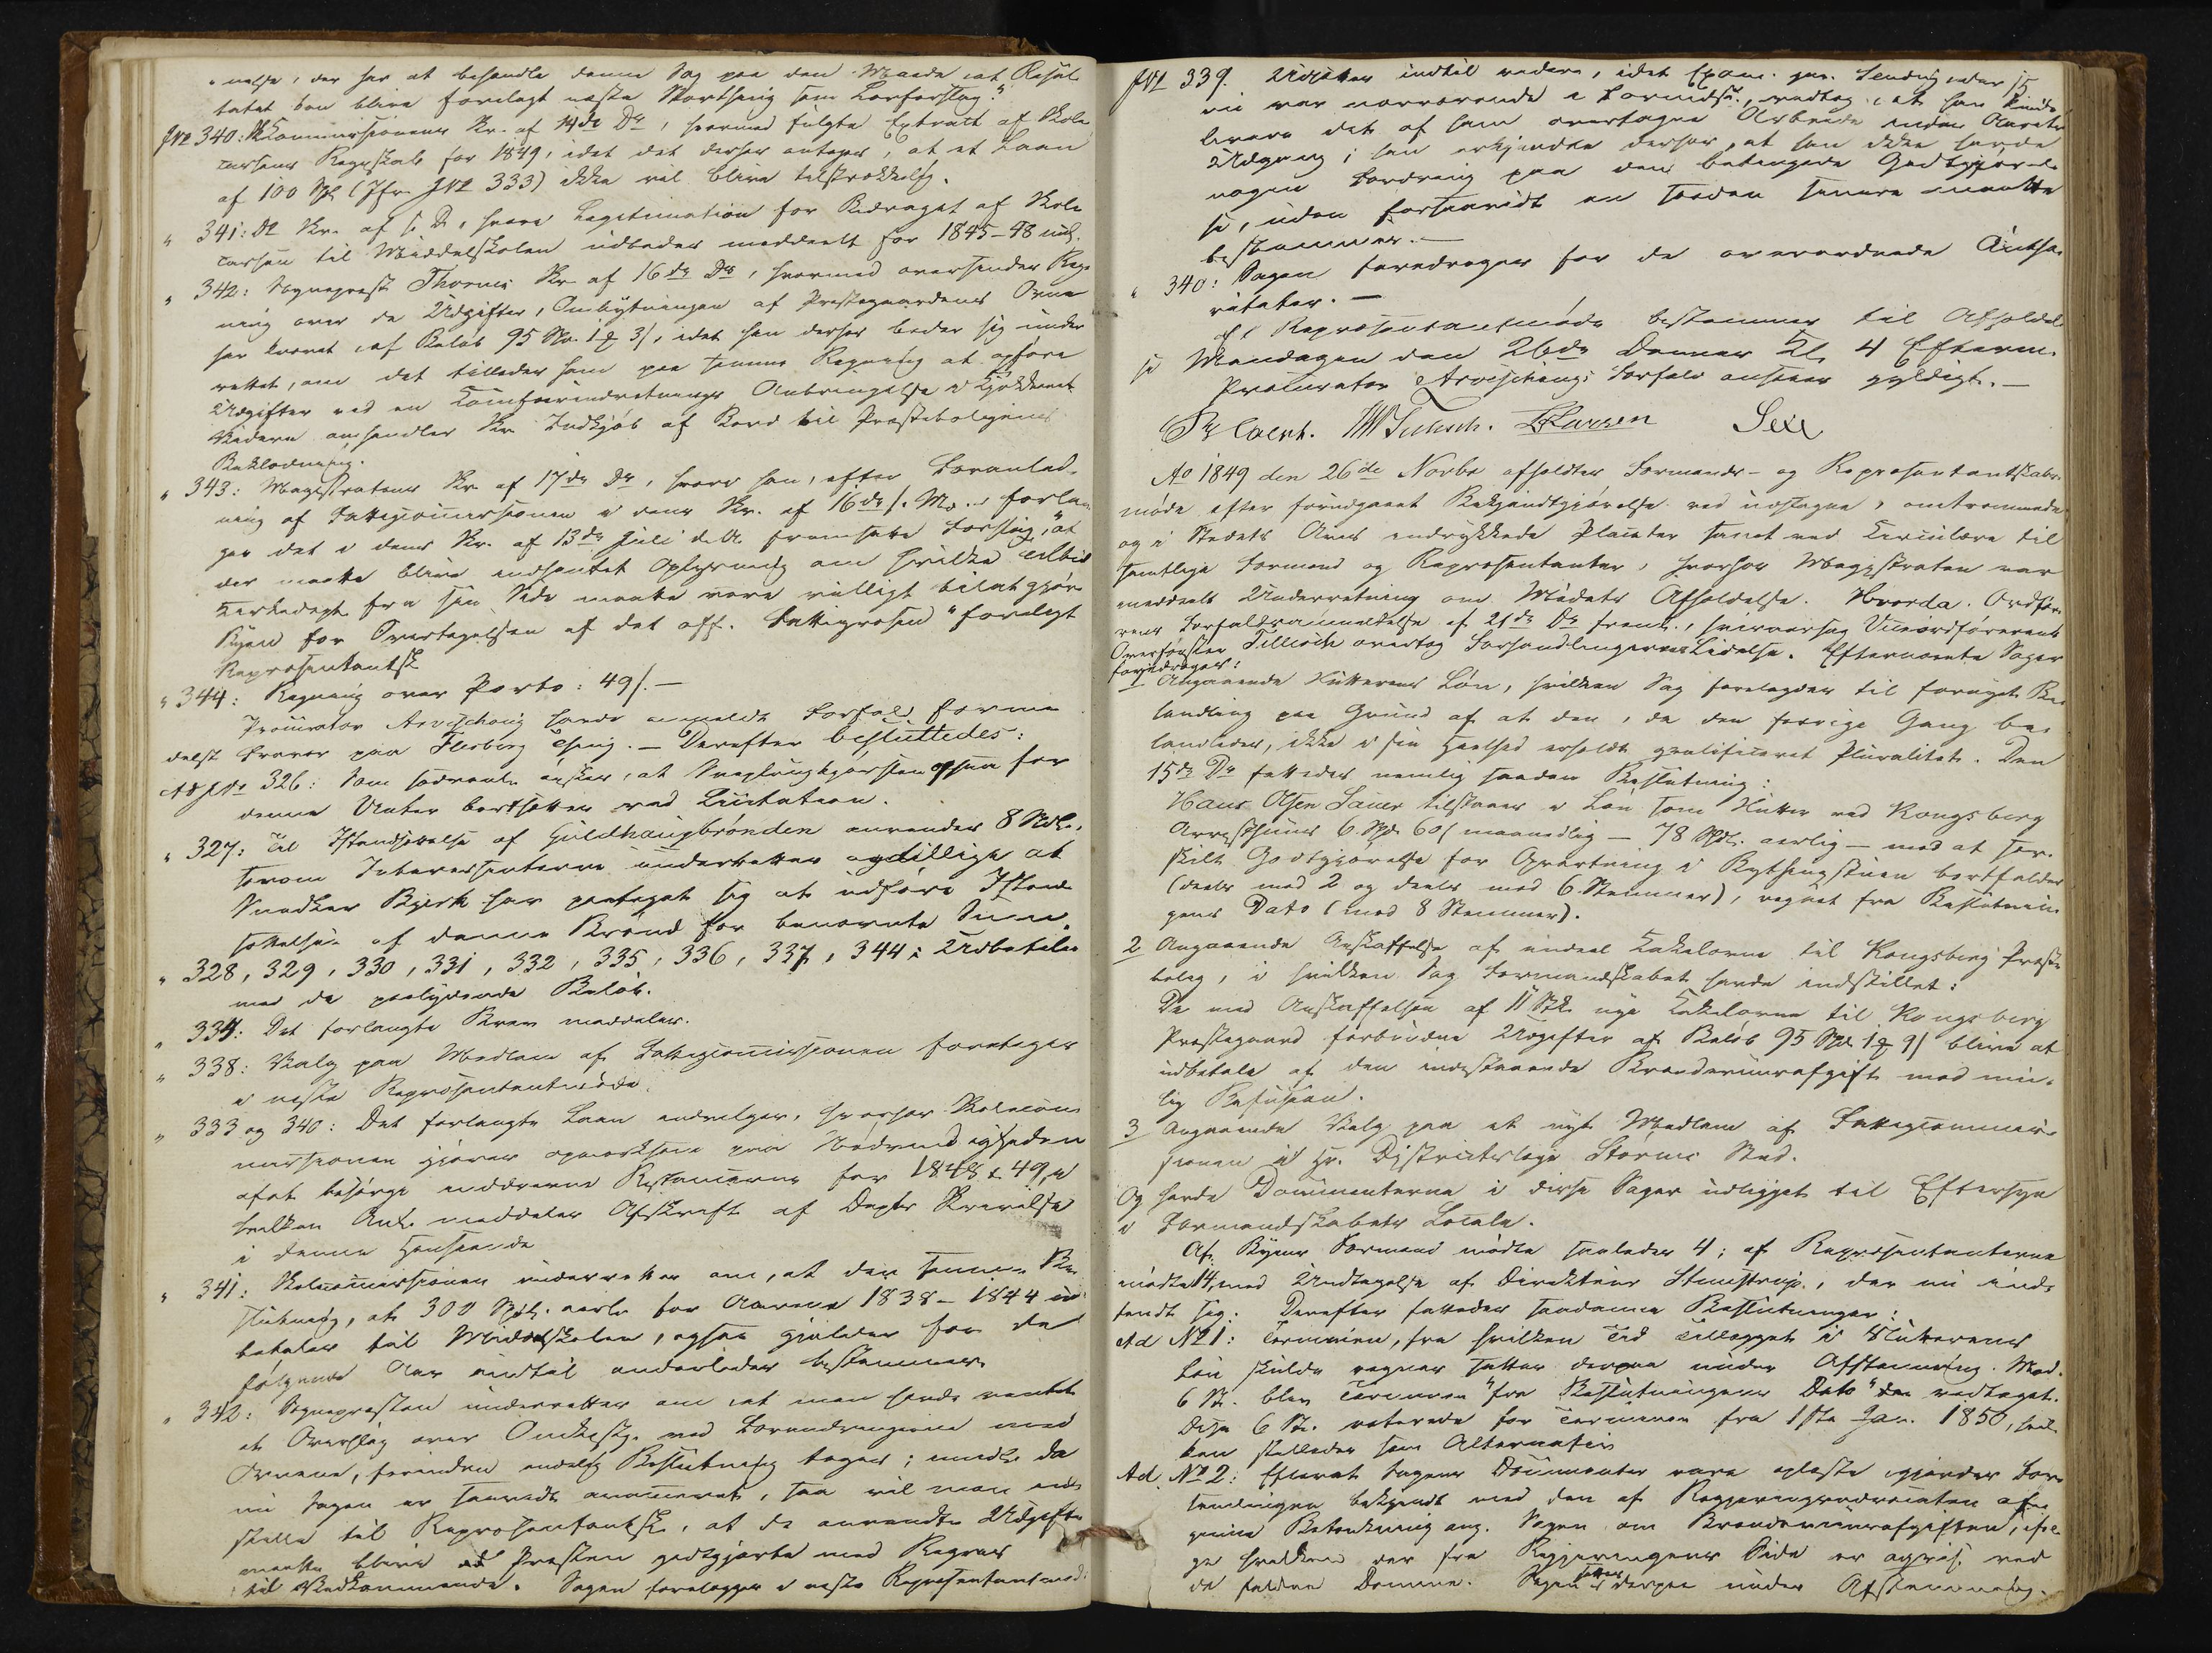 nelse, der har at behandle denne Sag paa den Maade, at Resul-
tatet kan blive forelagt næste Storthing som Lovforslag."
JN 340: Skolecommissionens Skr. af 14de Ds, hvormed fulgte Extract af Skole-
cassens Regnskab for 1849, idet det derhos antages, at et Laan
af 100 Spd. (Jfr. JN 333) ikke vil blive tilstrækkelig.
" 341: Ds Skr. af s. D., hvori Legitimation for Bidraget af Skole-
cassen til Middelskolen udbedes meddeelt for 1845-48 incl.
" 342: Sogneprest Thorns Skr. af 16de Ds, hvormed oversendes Reg-
ning over de Udgifter, Ombytningen af Prestegaardens Ovne
har krævet, af Beløb 95 Spd. 1 ort 3 s, idet han derhos beder sig under-
rettet, om det tillades ham paa samme Regning at opføre
Udgifter ved en Comfurindretnings Anbringelse i Kjøkkenet.
Videre omhandler Skr. Indkjøb af Bord til Prestebolegens
Beklædning.
" 343: Magistratens Skr. af 17de Ds, hvori han, efter Foranled-
ning af Fattigcommissionen i dens Skr. af 16de s. M., forlan-
ger det i dens Skr. af 13de Juli d. A. fremsatte Forslag, "at
der maatte blive indhentet Oplysning om hvilke
fra sin Side maatte være villigt til at gjøre
Byen for Overtagelsen af det off. Fattigvæsen" forelagt
Repræsentantsk.
" 344: Regning over Porto: 49 s. —
Procurator Arveschoug havde anmeldt Forfald formedelst
Fravær paa Flesberg Thing. — Derefter besluttedes:
Ad JN 326: Som fødrende ønskes, at ogsaa for
denne Vinter bortsættes ved Licitation.
" 327: Til Istandsættelse af Guldhaugbrønden anvendes 8 Spdlr.,
hvorom Interessenterne underrettes og tillige at
Snedker Bjerk har paataget sig at udføre Istand-
sættelsen af denne Brønd for benævnte Sum.
" 328, 329, 330, 331, 332, 335, 336, 337, 344: Udbetales
med de paalydende Beløb.
" 334: Det forlangte Brev meddeles.
" 338: Valg paa Medlem af Fattigcommissionen foretages
i næste Repræsentantmøde.
" 333 og 340: Det forlangte Laan indvilges, hvorhos Skolecom-
missionen gjøres opmærksom paa Nødvendigheden
af at besørge inddrevne Restancerne for 1848 & 49, i
hvilken Anl. meddeles Afskrift af Depts Skrivelse
i denne Henseende
" 341: Skolecommissionen underrettes om, at den samme Be-
slutning, at 300 Spdlr. aarlig for Aarene 1838-1844 ud-
betales til Middelskolen, ogsaa gjælder for de
følgende Aar indtil anderledes bestemmes.
" 342: Sognepresten underrettes om at man havde ventet
et Overslag over Omkostg. ved Forandringerne med
Ovnene, forinden endelig Beslutning toges; imidlr. da
nu Sagen er saavidt avanceret, saa vil man ind-
stille til Repræsentantsk., at de anvendte Udgifter
maatte blive Presten godtgjorte med Regres
til Vedkommende. Sagen forelægges i næste Repræsentantmøde.
JN 339. Udsættes indtil videre, idet Exam. jur. Sendig, der
nu var nærværende i Formdsk., vedtog, at han kunde
levere det af ham overtagne Arbeide inden Aarets
Udgang; han erkjendte derhos, at han ikke havde
nogen Fordring paa den betingede Godtgjørel-
se, uden forsaavidt en saadan senere maatte
bestemmes. —
" 340: Sagen foredrages for de overordnede Autho-
riteter. —
Repræsentantmøde bestemmes til Afholdel-
se Mandagen den 26de Dennes Kl. 4 Efterm.
Procurator Arveschougs Forfald ansees gyldigt. —
Th. Carch. Tuchsch. Larsen Sexe
Ao 1849 den 26de Novbr afholdtes Formands- og Repræsentantskabs-
møde efter forudgaaet Bekjendtgjørelse ved uoptagne, omtrommede
og i Stedets Avis indrykkede Placater samt ved Circulære til
samtlige Formænd og Repræsentanter, hvorhos Magistraten var
meddeelt Underretning om Mødets Afholdelse. Hvorda. Ordfø-
rerens Forfaldsanmeldelse af 21de Ds freml., hvorefter Viceordføreren
Overførster Tillisch overtog Forhandlingernes Ledelse. Efternævnte Sager
foredroges:
1 Angaaende Slutterens Løn, hvilken Sag forelagdes til fornyet Be-
handling paa Grund af at den, da den forrige Gang be-
handledes, ikke i sin Heelhed erholdt qvalificeret Pluralitet. Den
15de Ds fattedes nemlig saadan Beslutning:
Hans Olsen Sauer tilstaaes i Løn som Slutter ved Kongsberg
Arresthuus 6 Spd. 60 s maanedlig — 78 Spdlr. aarlig — mod at sær-
skilt Godtgjørelse for Opvartning i Bythingstuen bortfalder
(deels med 2 og deels med 6 Stemmer), regnet fra Beslutnin-
gens Dato (med 8 Stemmer).
2 Angaaende Anskaffelse af endeel Kakelovne til Kongsberg Preste-
boleg, i hvilken Sag Formandskabet havde indstillet:
De med Anskaffelsen af 11 Stk. nye Kakelovne til Kongsberg
Prestegaard forbundne Udgifter af Beløb 95 Spd. 1 ort 9 s blive at
udbetale af den indestaaende Brændeviinsafgift mod mu-
lig Refusion.
3 Angaaende Valg paa et nyt Medlem af Fattigcommis-
sionen i Hr. Districtslæge Størms Sted.
Og havde Documenterne i disse Sager udligget til Eftersyn
i Formandskabets Locale.
Af Byens Formænd mødte saaledes 4; af Repræsentanterne
mødte 14, med Undtagelse af Direkteur Steenstrup, der nu ind-
fandt sig. Derefter fattedes saadanne Beslutninger:
Ad No 1: Terminen, fra hvilken Tid Tillægget i Slutterens
Løn skulde regnes sattes derpaa under Afstemning. Med
6 St. blev Terminen "fra Beslutningens Dato" vedtaget.
Disse 6 St. voterede for Terminen fra 1ste Jan. 1850, hvil-
ken stilledes som Alternativ
Ad No 2: Efterat Sagens Documenter vare oplæste, gjordes For-
samlingen bekjendt med den af Regjeringsadvocaten af-
givne Betænkning ang. Sagen om Brændeviinsafgiften, ifølge
hvilken der fra Regjeringens Side er ved
de faldne Domme. Sagen sattes derpaa under Afstemning.